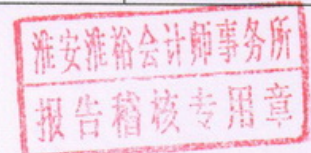 淮安淮裕会计师事务所
报告稽核专用章